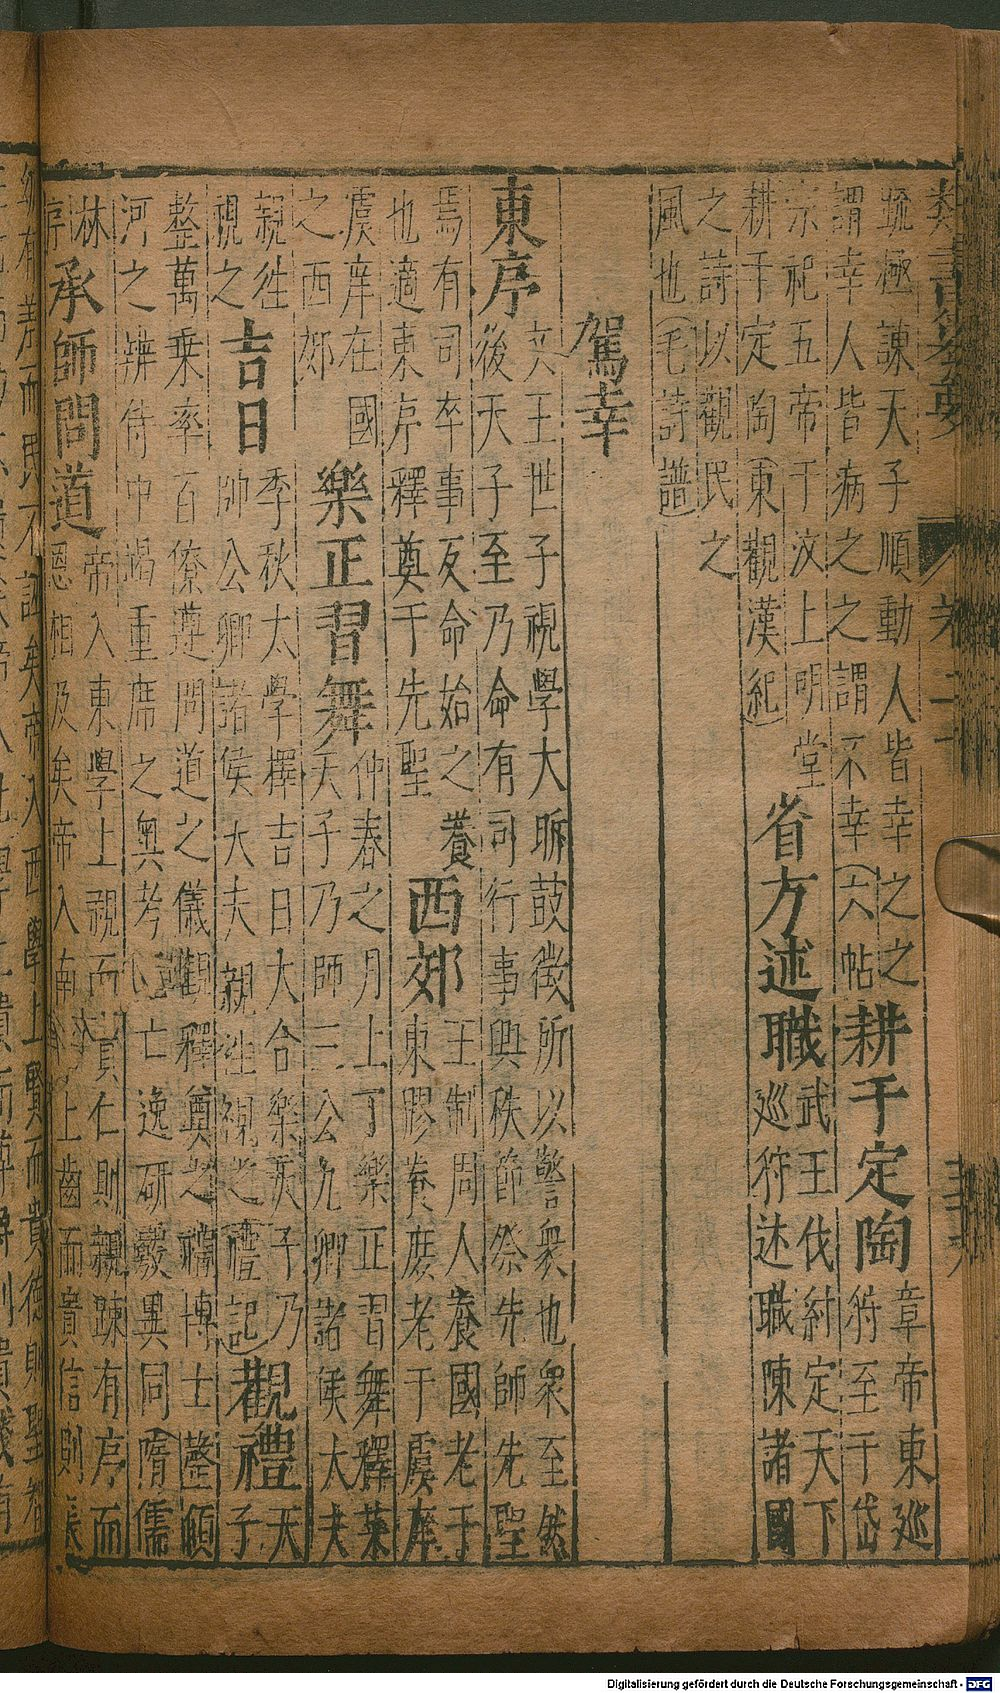 疏極諫天子順動人皆幸之之
謂幸人皆病之之謂不幸(六帖
耕于定陶
章帝東巡
狩至于岱
宗祀五帝于汶上明堂
耕于定陶(東觀漢紀)
省方述職
武王伐紂定天下
巡狩述職陳諸國
之詩以觀民之
風也(毛詩譜)
駕幸
東序
文王世子視學大昕鼓徵所以警衆也衆至然
後天子至乃命有司行事興秩節祭先師先聖
焉有司卒事反命始之養
也適東序釋奠于先聖
西郊
王制周人養國老于
東膠養庶老于虞庠
虞庠在國
之西郊
樂正習舞
仲春之月上丁樂正習舞釋菜
天子乃師三公九卿諸侯大夫
親往
視之
吉日
季秋太學擇吉日大合樂天子乃
帥公卿諸侯大夫親往視之(禮記)
觀禮
天
子
整萬乘率百僚遵問道之儀觀釋奠之禮博士罄傾
河之辨侍中竭重席之奧考亡逸研覈異同(隋儒
林
序
承師問道
帝入東學上親而貴仁則親踈有序而
恩相及矣帝入南學上齒而貴信則長
Digitalisierung gefördert durch die Deutsche Forschungsgemeinschaft - DFG